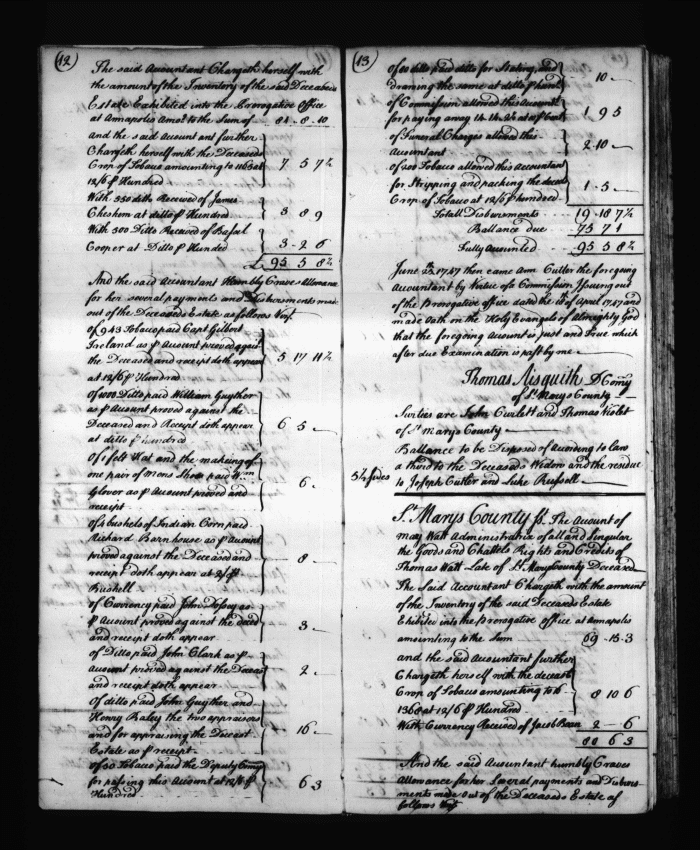 12
The said Accountant Chargeth herself with
the amount of the Inventory of the said Deceased's
Estate Exhibited into the Prerogative Office
at Annapolis Amot. to the Sum of 81 - 8 - 10
and the said Accountant further
Chargeth herself with the Deceaseds
Crop of Tobacco amounting to 1163 at 7 5 7½
12/6 ⅌ Hundred
With 550 ditto Received of James
Cheshem at ditto ⅌ Hundred 3 8 9
With 500 Ditto Received of
Cooper at Ditto ⅌ Hundred 3 - 2 6
£ 95 5 8½
And the said Accountant Humbly Craves Allowance
for her several payments and Disbursments made
out of the Deceaseds Estate as follows Vizt.
Of 943 Tobacco paid Capt Gilbert
Ireland as ⅌ Account proved against
the Deceased and receipt doth appear 5 17 11½
at 12/6 ⅌ Hundred
Of 1000 Ditto paid William Guyther
as ⅌ Account proved against the
Deceased and Receipt doth appear 6 5 -
at ditto ⅌ hundred
Of 1 felt Hat and the makeing of
one pair of Mens Shoes paid Wm
Glover as ⅌ Account proved and 6 -
receipt
Of 4 bushels of Indian Corn paid
Richard Barnhouse as ⅌ Account
proved against the Deceased and 8 -
receipt doth appear at 2/ ⅌
Bushell
Of Currency paid John as
⅌ Account proved against the deced 3 -
and receipt doth appear
Of Ditto paid John Clark as ⅌
Account proved against the Deceas 2 -
and receipt doth appear
Of ditto paid John Guyther and
Henry Raley the two appraisors
and for appraising the Deceast 16 -
Estate as ⅌ receipt
Of 50 Tobacco paid the Deputy Comy
for passing this Account at 12/6 ⅌ 6 3
Hundred
13
Of 80 ditto paid ditto for Stating and
drawing the same at ditto ⅌ hund 10 -
of Commission allowed this Accountt
for paying away 1 9 5
of Funeral Charges allowed this
Accountant 2 - 10 -
Of 200 Tobacco allowed this Accountant
for Stripping and packing the deced 1 - 5 -
Crop of Tobacco at 12/6 ⅌ hundred
Totall Disbursments 19 - 18 7½
Ballance due 75 7 1
Fully Accounted 95 5 8½
June 23th 1747 then came Ann Cutler the foregoing
Accountant by Virtue of a Commission Issuing out
of the Prerogative office dated the of April 1747 and
made Oath on the Holy Evangels of Almighty God
that the foregoing Account is Just and True which
after due Examination is past by me
Thomas Aisquith D Comry
of St Marys County
Surties are John Curlett and Thomas Violet
of St marys County
Ballance to be Disposed of According to Law
a third to the Deceaseds Widow and the residue
to Joseph Cutler and Luke Russell
5¼ sides
St. Marys County ss. The Account of
mary Watt Administratrix of all and Singular
the Goods and Chattels Rights and Credits of
Thomas Watt Late of St. Marys County Deceased
The Said Accountant Chargeth with the amount
of the Inventory of the said Deceaseds Estate
Exhibited into the Prerogative office at Annapolis
amounting to the Sum 69 - 15 - 3
and the said Accountant further
Chargeth her self with the deceast
Crop of Tobacco amounting to 8 10 6
1368 at 12/6 ⅌ Hundred
With Currency Received of Jacob Bean 2 - 6
80 6 3
And the said Accountant humbly Craves
Allowance for her Several payments and Disburs
ments made out of the Deceaseds Estate as
follows Vizt